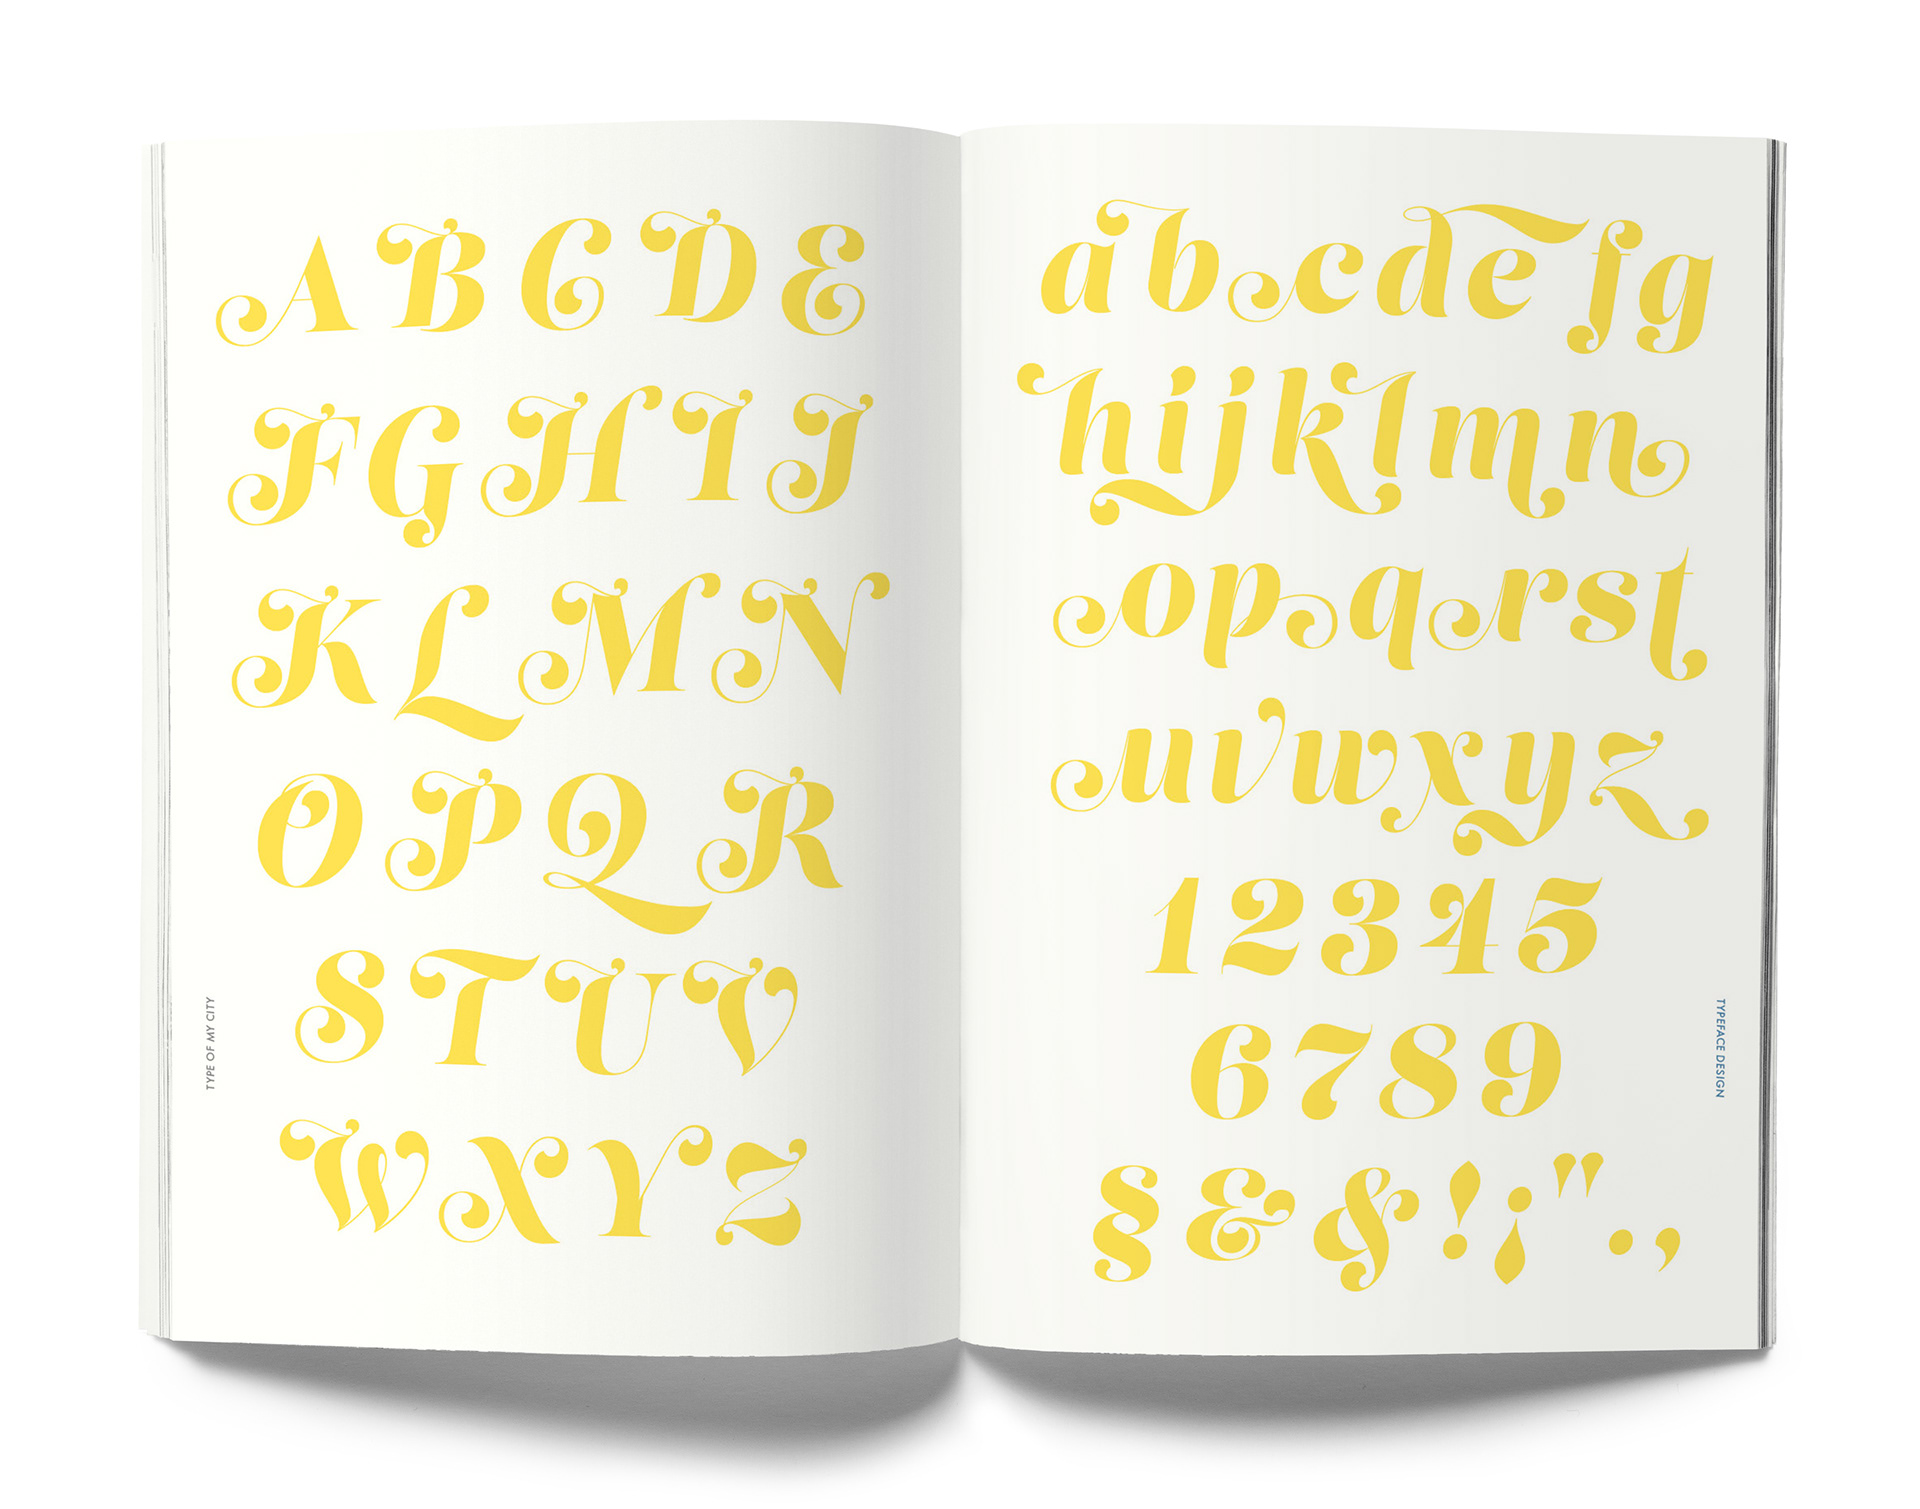 ABCDE
FGHIJ
KLMN
OPQR
STUV
WXYZ
TYPE OF MY CITY
abcdefg
hijklmn
opqrst
uvwxyz
12345
6789
§&&!¡".,
TYPEFACE DESIGN